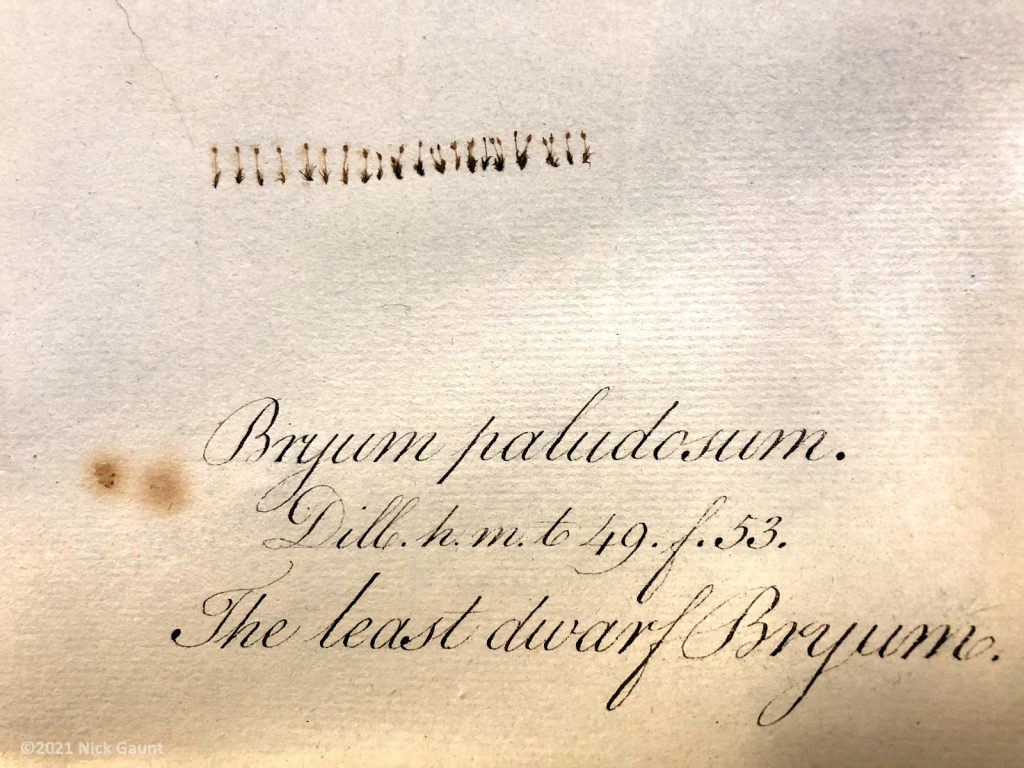 Bryum paludosum.
Dill. h. m. t 49. f. 53.
The least dwarf Bryum.
©2021 Nick Gaunt